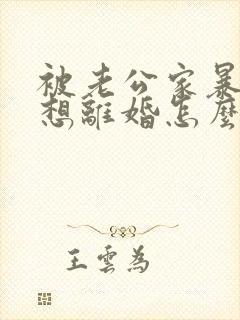 被老公家暴
想離婚怎麼
王雲為